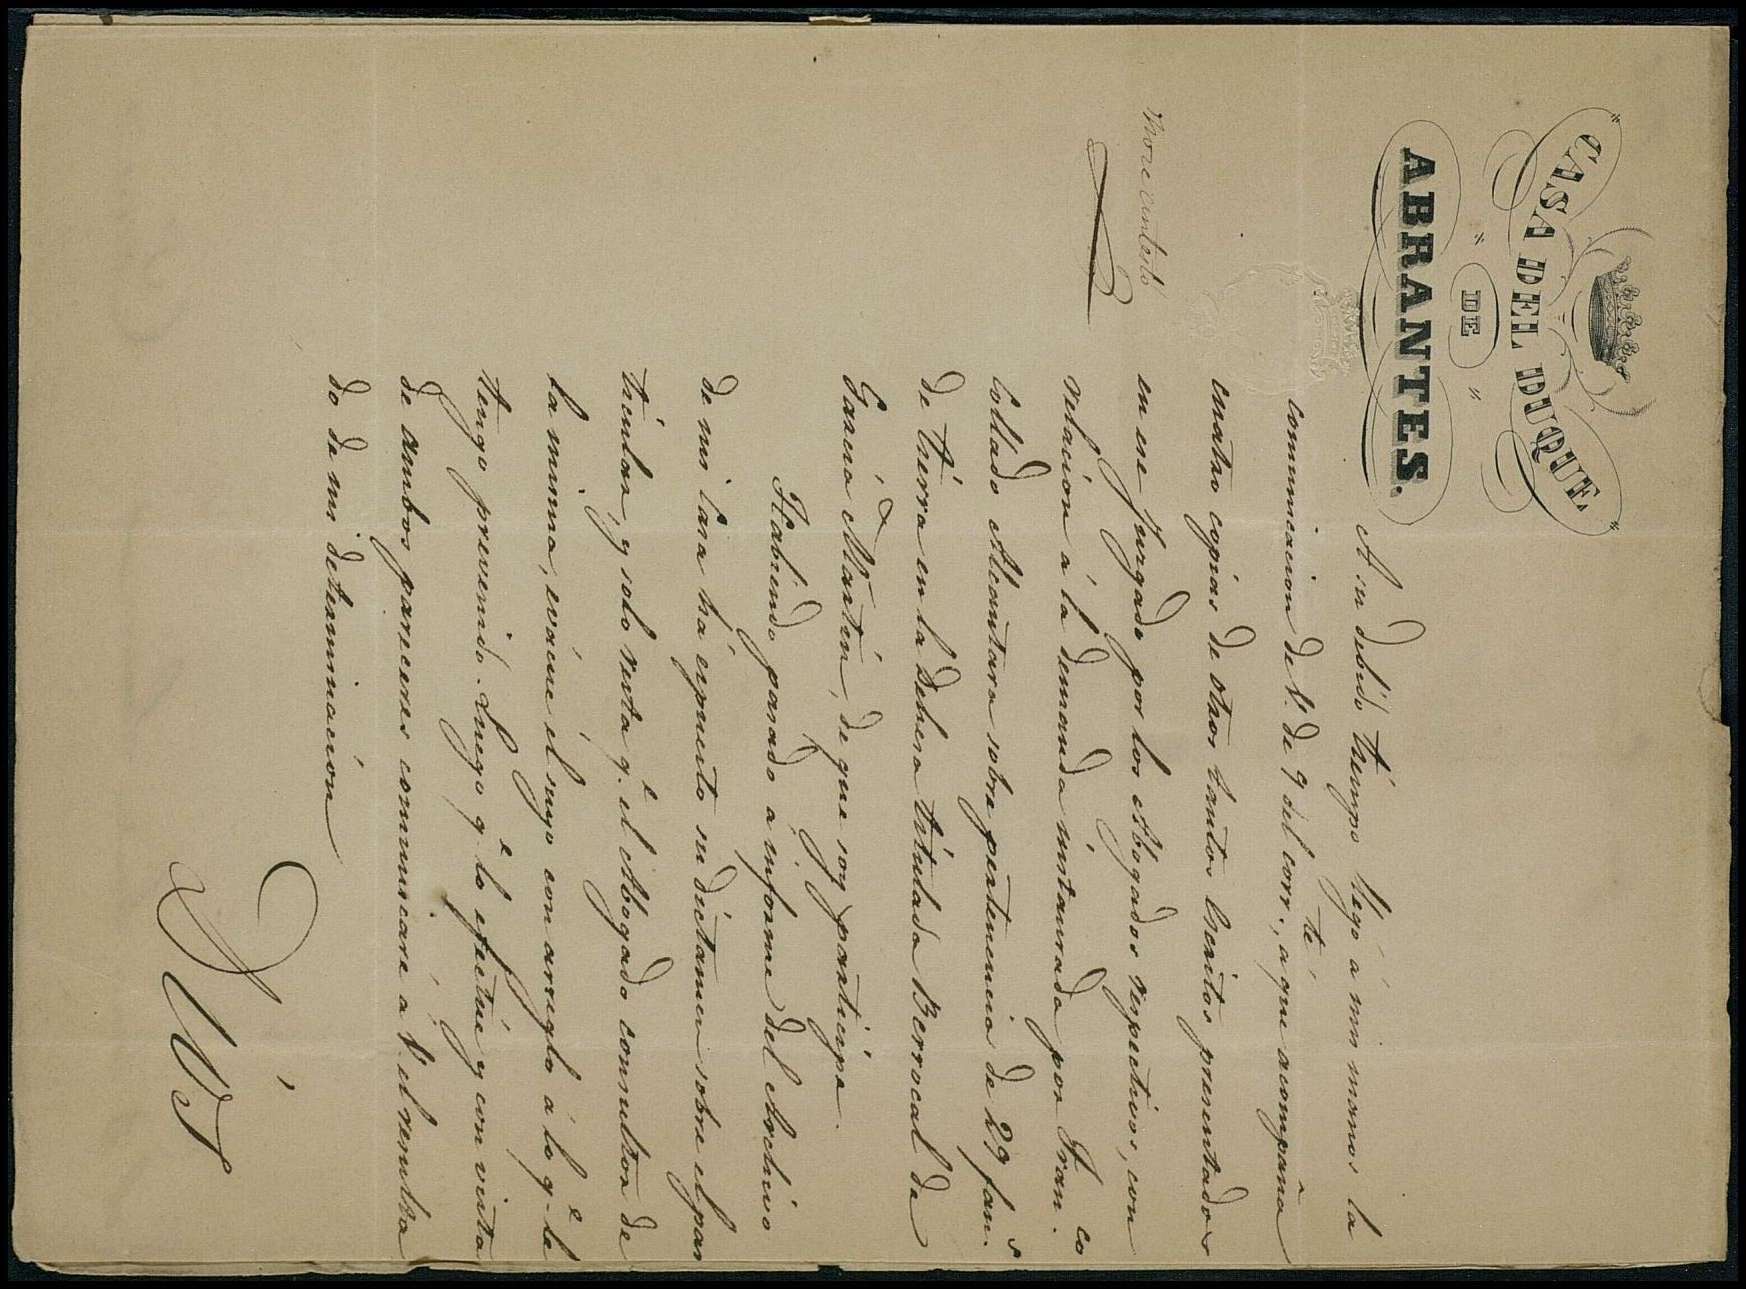 CASA DEL DUQUE
DE
ABRANTES.
A su debido tiempo llegó á mis manos la
comunicacion de V. de 9 del corr.te, a que acompaña
cuatro copias de otros tantos escritos presentados
en ese Juzgado por los Abogados respectivos, con
relacion á la demanda instaurada por Fran.co
Collado Alcantara sobre pertenencia de 29 fan.s
de tierra en la Dehesa titulada Berrocal de
Garcia Martin, de que soy participe.
Habiendo pasado a informe del Archivo
de mi Casa há espuesto su dictamen sobre el par
ticular, y solo resta q.e el Abogado consultor de
la misma, evácue el suyo con arreglo á lo q.e le
tengo prevenido. Luego q.e lo efectúe y con vista
de ambos pareceres comunicaré a V. el resulta
do de mi determinación